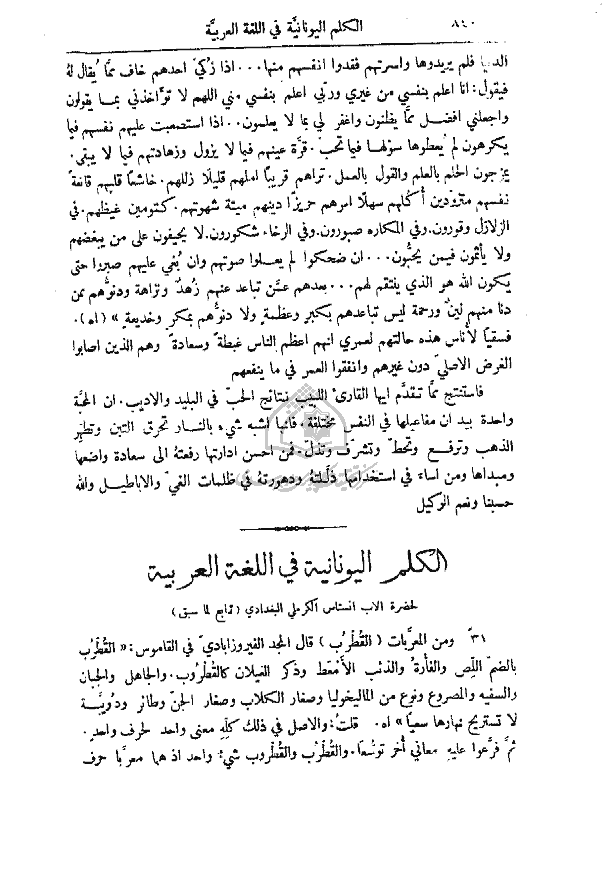 ٨٤٠ الكلم اليونانيَّة في اللغة العربيَّة
الدنيا فلم يريدوها واسرتهم فقدوا انفسهم منها... اذا زُكّيَ احدهم خاف ممَّا يُقال لهُ
فيقول: انا اعلم بنفسي من غيري وربّي اعلم بنفسي مني اللهم لا تؤاخذني بما يقولون
واجعلني افضل ممَّا يظنون واغفر لي بما لا يعلمون... اذا استصعبت عليهم نفسهم فيما
يكرهون لم يُعطوها سؤلها فيما تحبّ. قرَّة عينهم فيما لا يزول وزهادتهم فيما لا يبقى.
يمزجون الحلم بالعلم والقول بالعمل. تراهم قريبًا املهم قليلًا زللهم. خاشعًا قلبهم قانعةً
نفسهم متزودين أُكلهم سهلًا امرهم حريزًا دينهم ميتة شهوتهم. كتومين غيظهم. في
الزلازل وقورون. وفي المكاره صبورون. وفي الرخاء شكورون. لا يحيفون على من يبغضهم
ولا يأثمون فيمن يحبُّون... ان ضحكوا لم يعلوا صوتهم وان بُغي عليهم صبروا حتى
يكون الله هو الذي ينتقم لهم... بعدهم عمَّن تباعد عنهم زهدٌ ونزاهة ودنوُّهم ممن
دنا منهم لينٌ ورحمة ليس تباعدهم بكبرٍ وعظمةٍ ولا دنوُّهم بمكرٍ وخديعةٍ» (اه).
فسقيًا لأناس هذه حالتهم لعمري انهم اعظم الناس غبطةً وسعادةً وهم الذين اصابوا
الغرض الاصليَّ دون غيرهم وانفقوا العمر في ما ينفعهم
فاستنتج ممَّا تقدَّم ايها القارئ اللبيب نتائج الحبّ في البليد والاديب. ان المحبَّة
واحدة بيد ان مفاعيلها في النفس مختلفة. فانها اشبه شيء بالنار تحرق التبن وتطهّر
الذهب وترفع وتحطّ وتشرّف وتذلّ. فمن احسن ادارتها رفعتهُ الى سعادة واضعها
ومبداها ومن اساء في استخدامها ذلَّلتهُ ودهورتهُ في ظلمات الغيّ والاباطيل والله
حسبنا ونعم الوكيل
الكلم اليونانية في اللغة العربية
لحضرة الاب انستاس الكرملي البغدادي (تابع لما سبق)
٣١ ومن المعربات (القُطرُب) قال المجد الفيروزاباديّ في القاموس: «القُطْرُب
بالضمّ اللِّص والفأرةُ والذئب الأَمْعَط وذكر الغيلان كالقُطْرُوب. والجاهل والجبان
والسفيه والمصروع ونوع من الماليخوليا وصغار الكلاب وصغار الجنّ وطائر ودُوَيبَّة
لا تستريح نهارها سعيًا» اه. قلتُ: والاصل في ذلك كلّهِ معنى واحد لحرف واحد.
ثمَّ فرَّعوا عليهِ معاني أُخر توسُّعًا. والقُطْرُب والقُطْروب شيءٌ واحد اذ هما معرَّبا حرف